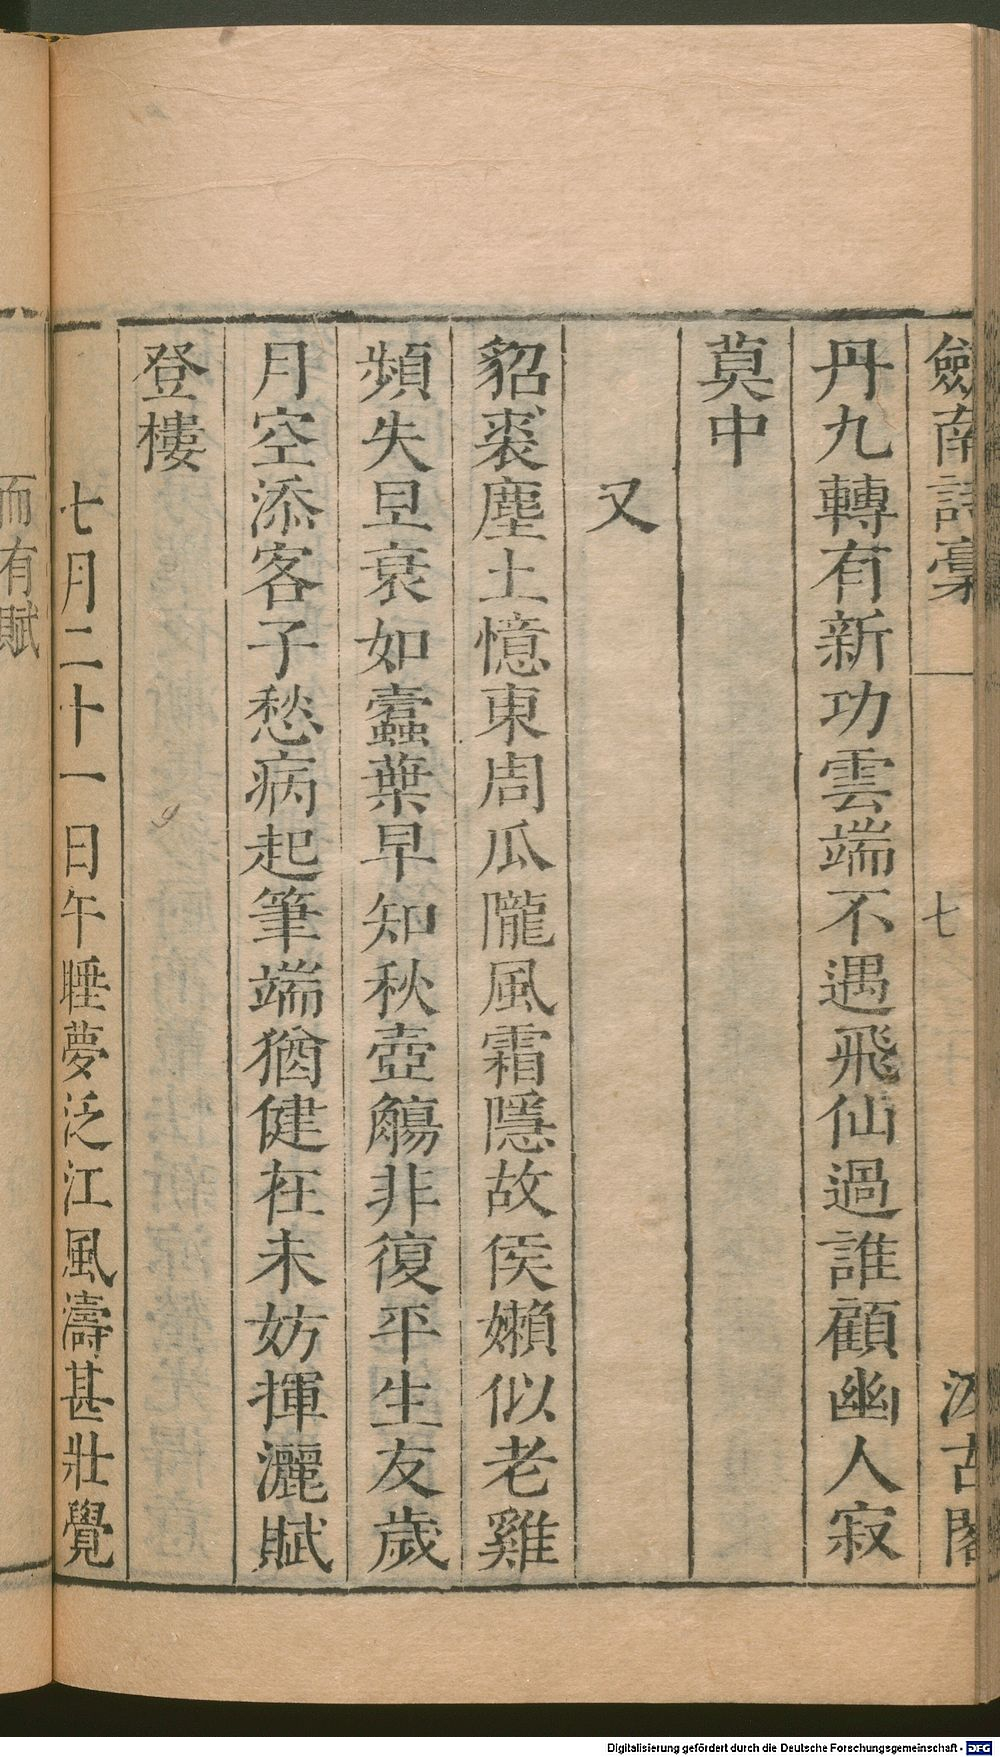 劒南詩稾
七
汲古閣
丹九轉有新功雲端不遇飛仙過誰顧幽人寂
莫中
又
貂裘塵土憶東周瓜隴風霜隱故侯嬾似老雞
頻失旦衰如蠹葉早知秋壺觴非復平生友歲
月空添客子愁病起筆端猶健在未妨揮灑賦
登樓
七月二十一日午睡夢泛江風濤甚壯覺
而有賦
Digitalisierung gefördert durch die Deutsche Forschungsgemeinschaft - DFG